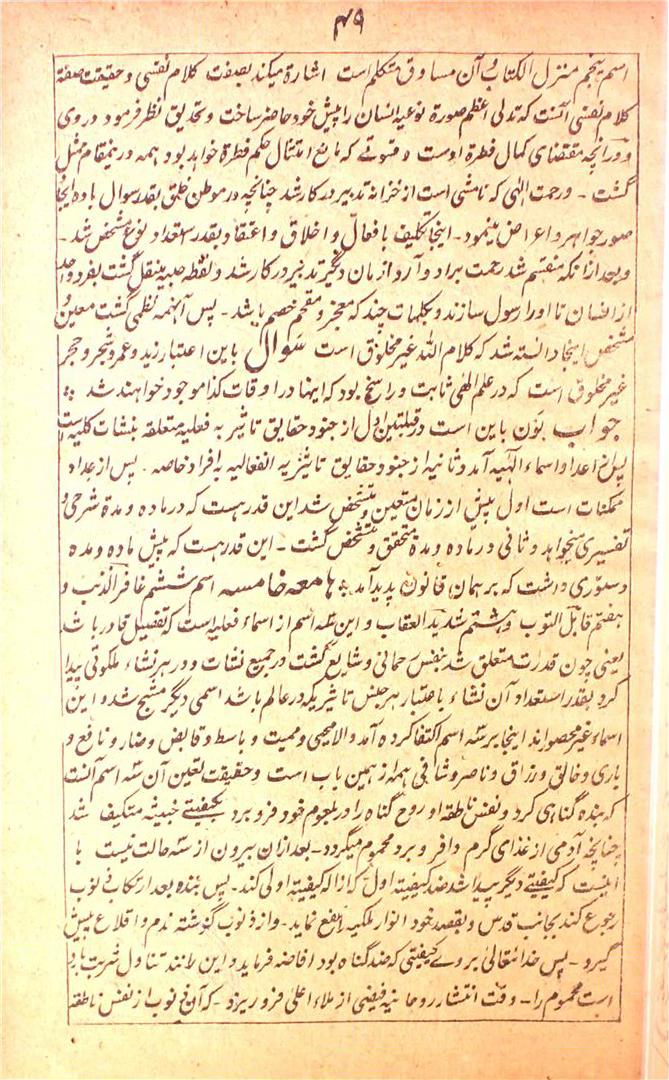 ۴۹
اسم پنجم منزل الکتاب و آن مساوق متکلم است اشارة میکند بصفت کلام نفسی و حقیقت صفة
کلام نفسی آنست که تدلی اعظم صورة نوعیه انسان را پیش خود حاضر ساخت و تحدیق نظر فرمود در وی
و در آنچه مقتضای کمال فطرة اوست و قسوتے که مانع امتثال حکم فطرة خواهد بود همه در ینمقام مثل
گشت - و رحمت الهی که ناشی است از خزانه تدبیر در کار شد چنانچه در موطن طبق بقدر سوال ماده ایجا
صور جواهر و اعراض مینمود - اینجا تکلیف بافعال و اخلاق و اعتقاد بقدر استعداد نوع مشخص شد -
و بعد از آنکه منقسم شد رحمت براد و آرد ازمان دگیر تدبیر در کار شد و نقطه حبیه منتقل گشت بفرد واحد
از انسان تا او را رسول سازند و بکلمات چند که معجز و مفحم خصم باشد - پس آنهمه نظمی گشت معین و
مشخص اینجا دانسته شد که کلام الله غیر مخلوق است سوال باین اعتبار زید و عمرو و شجر و حجر
غیر مخلوق است که در علم الهی ثابت و راسخ بود که اینها در اوقات کذا موجود خواهند شد
جواب بون باین است در قبلتین اول از جنود حقایق تاثیریه فعلیه متعلقه بنشات کلیه است
پس از اعداد اسماء الٓهیه آمد و ثانیه از جنود حقایق تاثریه انفعالیه بافراد خاصه . پس از عداد
ممکنات است اول پیش از زمان متعین و متشخص شد این قدر هست که در ماده و مدة شرحی و
تفسیری میخواهد و ثانی در ماده و مدة متحقق و متشخص گشت - این قدر هست که پیش ماده و مده
دستوری داشت که بر همان قانون پدید آمد هامعه خامسه اسم ششم غافر الذنب و
هفتم قابل التوب و هشتم شدید العقاب و این سه اسم از اسماء فعلیه است که تفصیل قادر باشد
یعنی چون قدرت متعلق شد بنفس رحمانی و شایع گشت در جمیع نشات و در هر نشاء ملکوتی پیدا
کرد بقدر استعداد آن نشاء باعتبار هر جنس تاثیریکه در عالم باشد اسمی دیگر متشبح شد و این
اسماء غیر محصور اند اینجا بر سه اسم اکتفا کرده آمد والا محیی و ممیت و باسط و قابض و ضار و نافع و
باری و خالق و رزاق و ناصر و شافی همه از همین باب است و حقیقت تعین آن سه اسم آنست
که بنده گناهی کرد و نفس ناطقه او روح گناه را در بلعوم خود فرو برد بکیفیتے خبیثه متکیف شد
چنانچه آدمی از غذای گرم وافر و برد محموم میگردد - بعد ازان بیرون از سه حالت نیست یا
اینست که کیفیتے دیگر پیدا شد ضد کیفیته اول که ازاله کیفیته اولی کند - پس بنده بعد ارتکاب ذنوب
رجوع کند بجانب قدس و بقصد خود انوار ملکیه نفع نماید - و از ذنوب گذشته ندم و اقلاع پیش
گیرد - پس خدا تعالیٰ بر وے کیفیتی که ضد گناه بود افاضه فرماید و این مانند تناول شربت بارد
است محموم را - وقت انتشار روحانیه فیضی از ملاء اعلی فرو ریزد - که آن ذنوب از نفس ناطقه